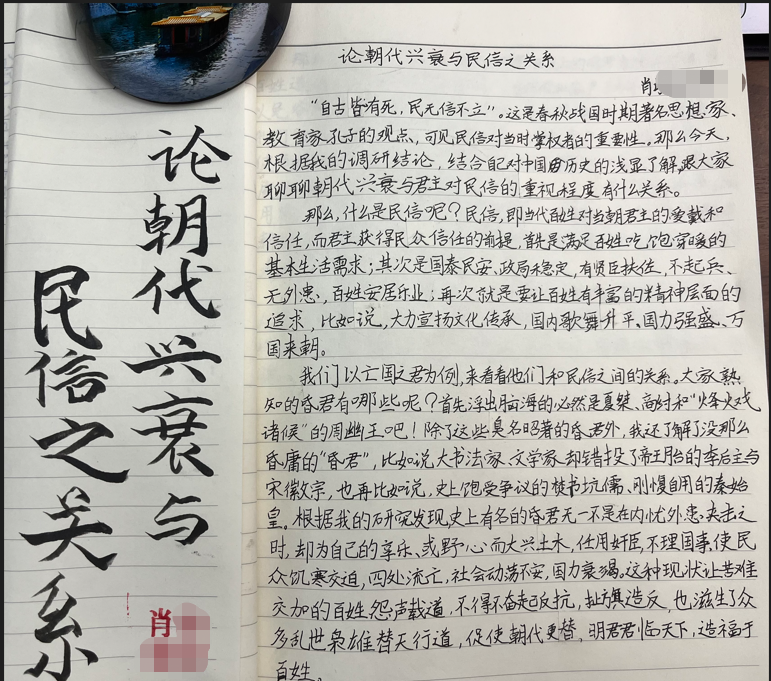 论朝代兴衰与
民信之关系
肖
论朝代兴衰与民信之关系
肖
“自古皆有死，民无信不立”。这是春秋战国时期著名思想家、
教育家孔子的观点，可见民信对当时掌权者的重要性。那么今天，
根据我的调研结论，结合自己对中国历史的浅显了解，跟大家
聊聊朝代兴衰与君主对民信的重视程度有什么关系。
那么，什么是民信呢？民信，即当代百姓对当朝君主的爱戴和
信任，而君主获得民众信任的前提，首先是满足百姓吃饱穿暖的
基本生活需求；其次是国泰民安、政局稳定，有贤臣扶佐，不起兵、
无外患，百姓安居乐业；再次就是要让百姓有丰富的精神层面的
追求，比如说，大力宣扬文化传承，国内歌舞升平、国力强盛、万
国来朝。
我们以亡国之君为例，来看看他们和民信之间的关系。大家熟
知的昏君有哪些呢？首先浮出脑海的必然是夏桀、商纣和“烽火戏
诸侯”的周幽王吧！除了这些臭名昭著的昏君外，我还了解了没那么
昏庸的“昏君”，比如说大书法家、文学家却错投了帝王胎的李后主与
宋徽宗，也再比如说，史上饱受争议的焚书坑儒、刚愎自用的秦始
皇。根据我的研究发现，史上有名的昏君无一不是在内忧外患夹击之
时，却为自己的享乐、或野心而大兴土木，任用奸臣，不理国事，使民
众饥寒交迫，四处流亡，社会动荡不安，国力衰竭。这种现状让苦难
交加的百姓怨声载道，不得不奋起反抗，扯旗造反，也滋生了众
多乱世枭雄替天行道，促使朝代更替，明君君临天下，造福于
百姓。